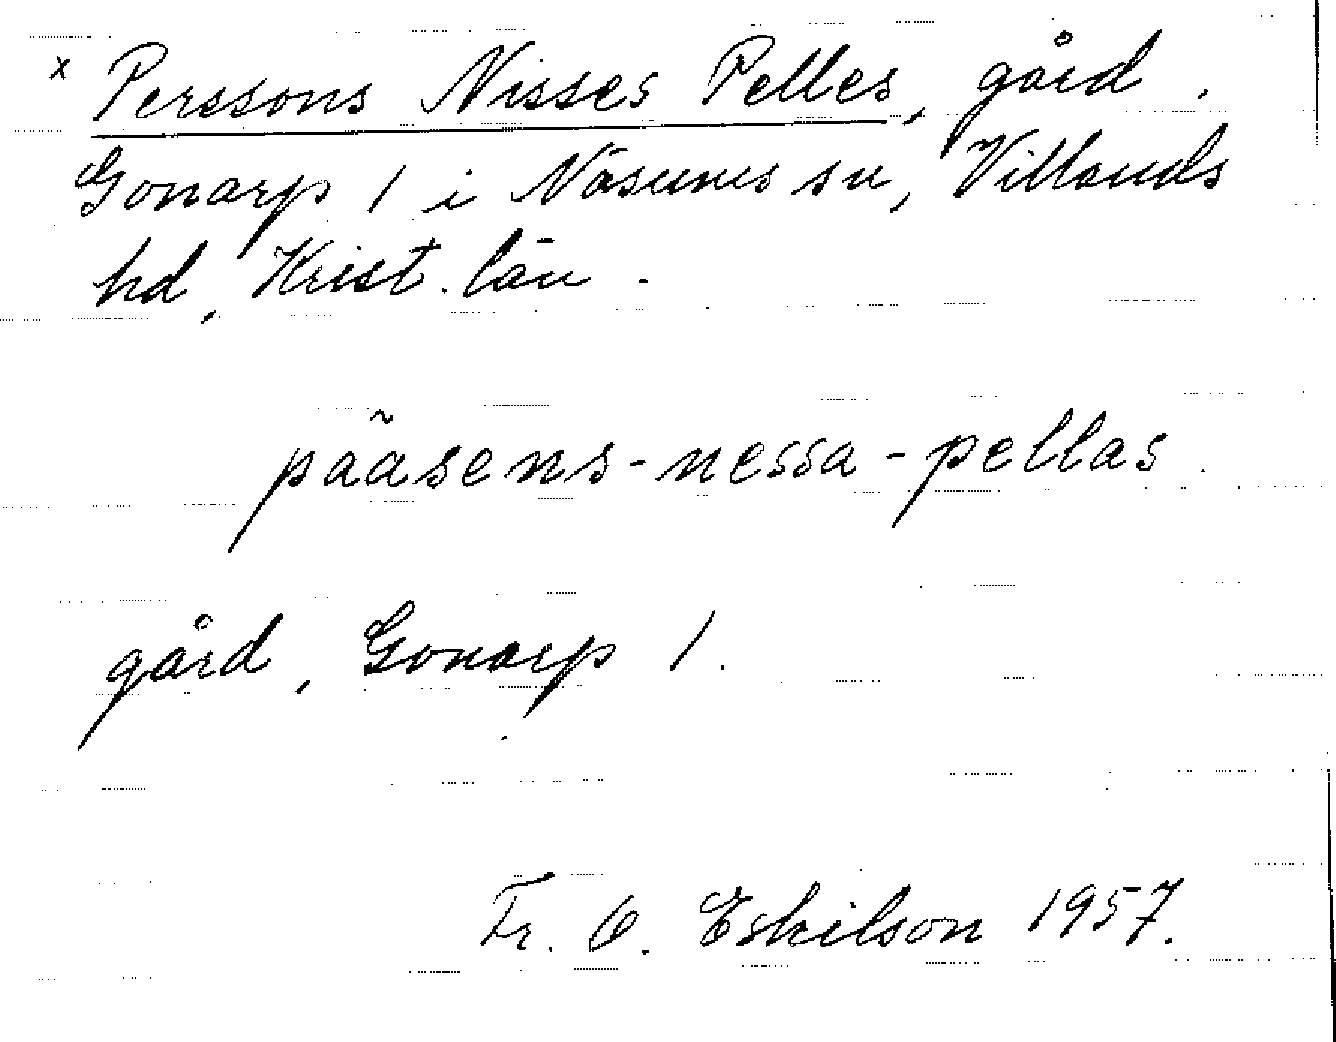 x Perssons Nisses Pelles, gård.
Gonarp 1 i Näsums sn, Villands
hd, Krist. län.
pããsens-nessa-pellas.
gård, Gonarp 1.
Fr. O. Eskilson 1957.